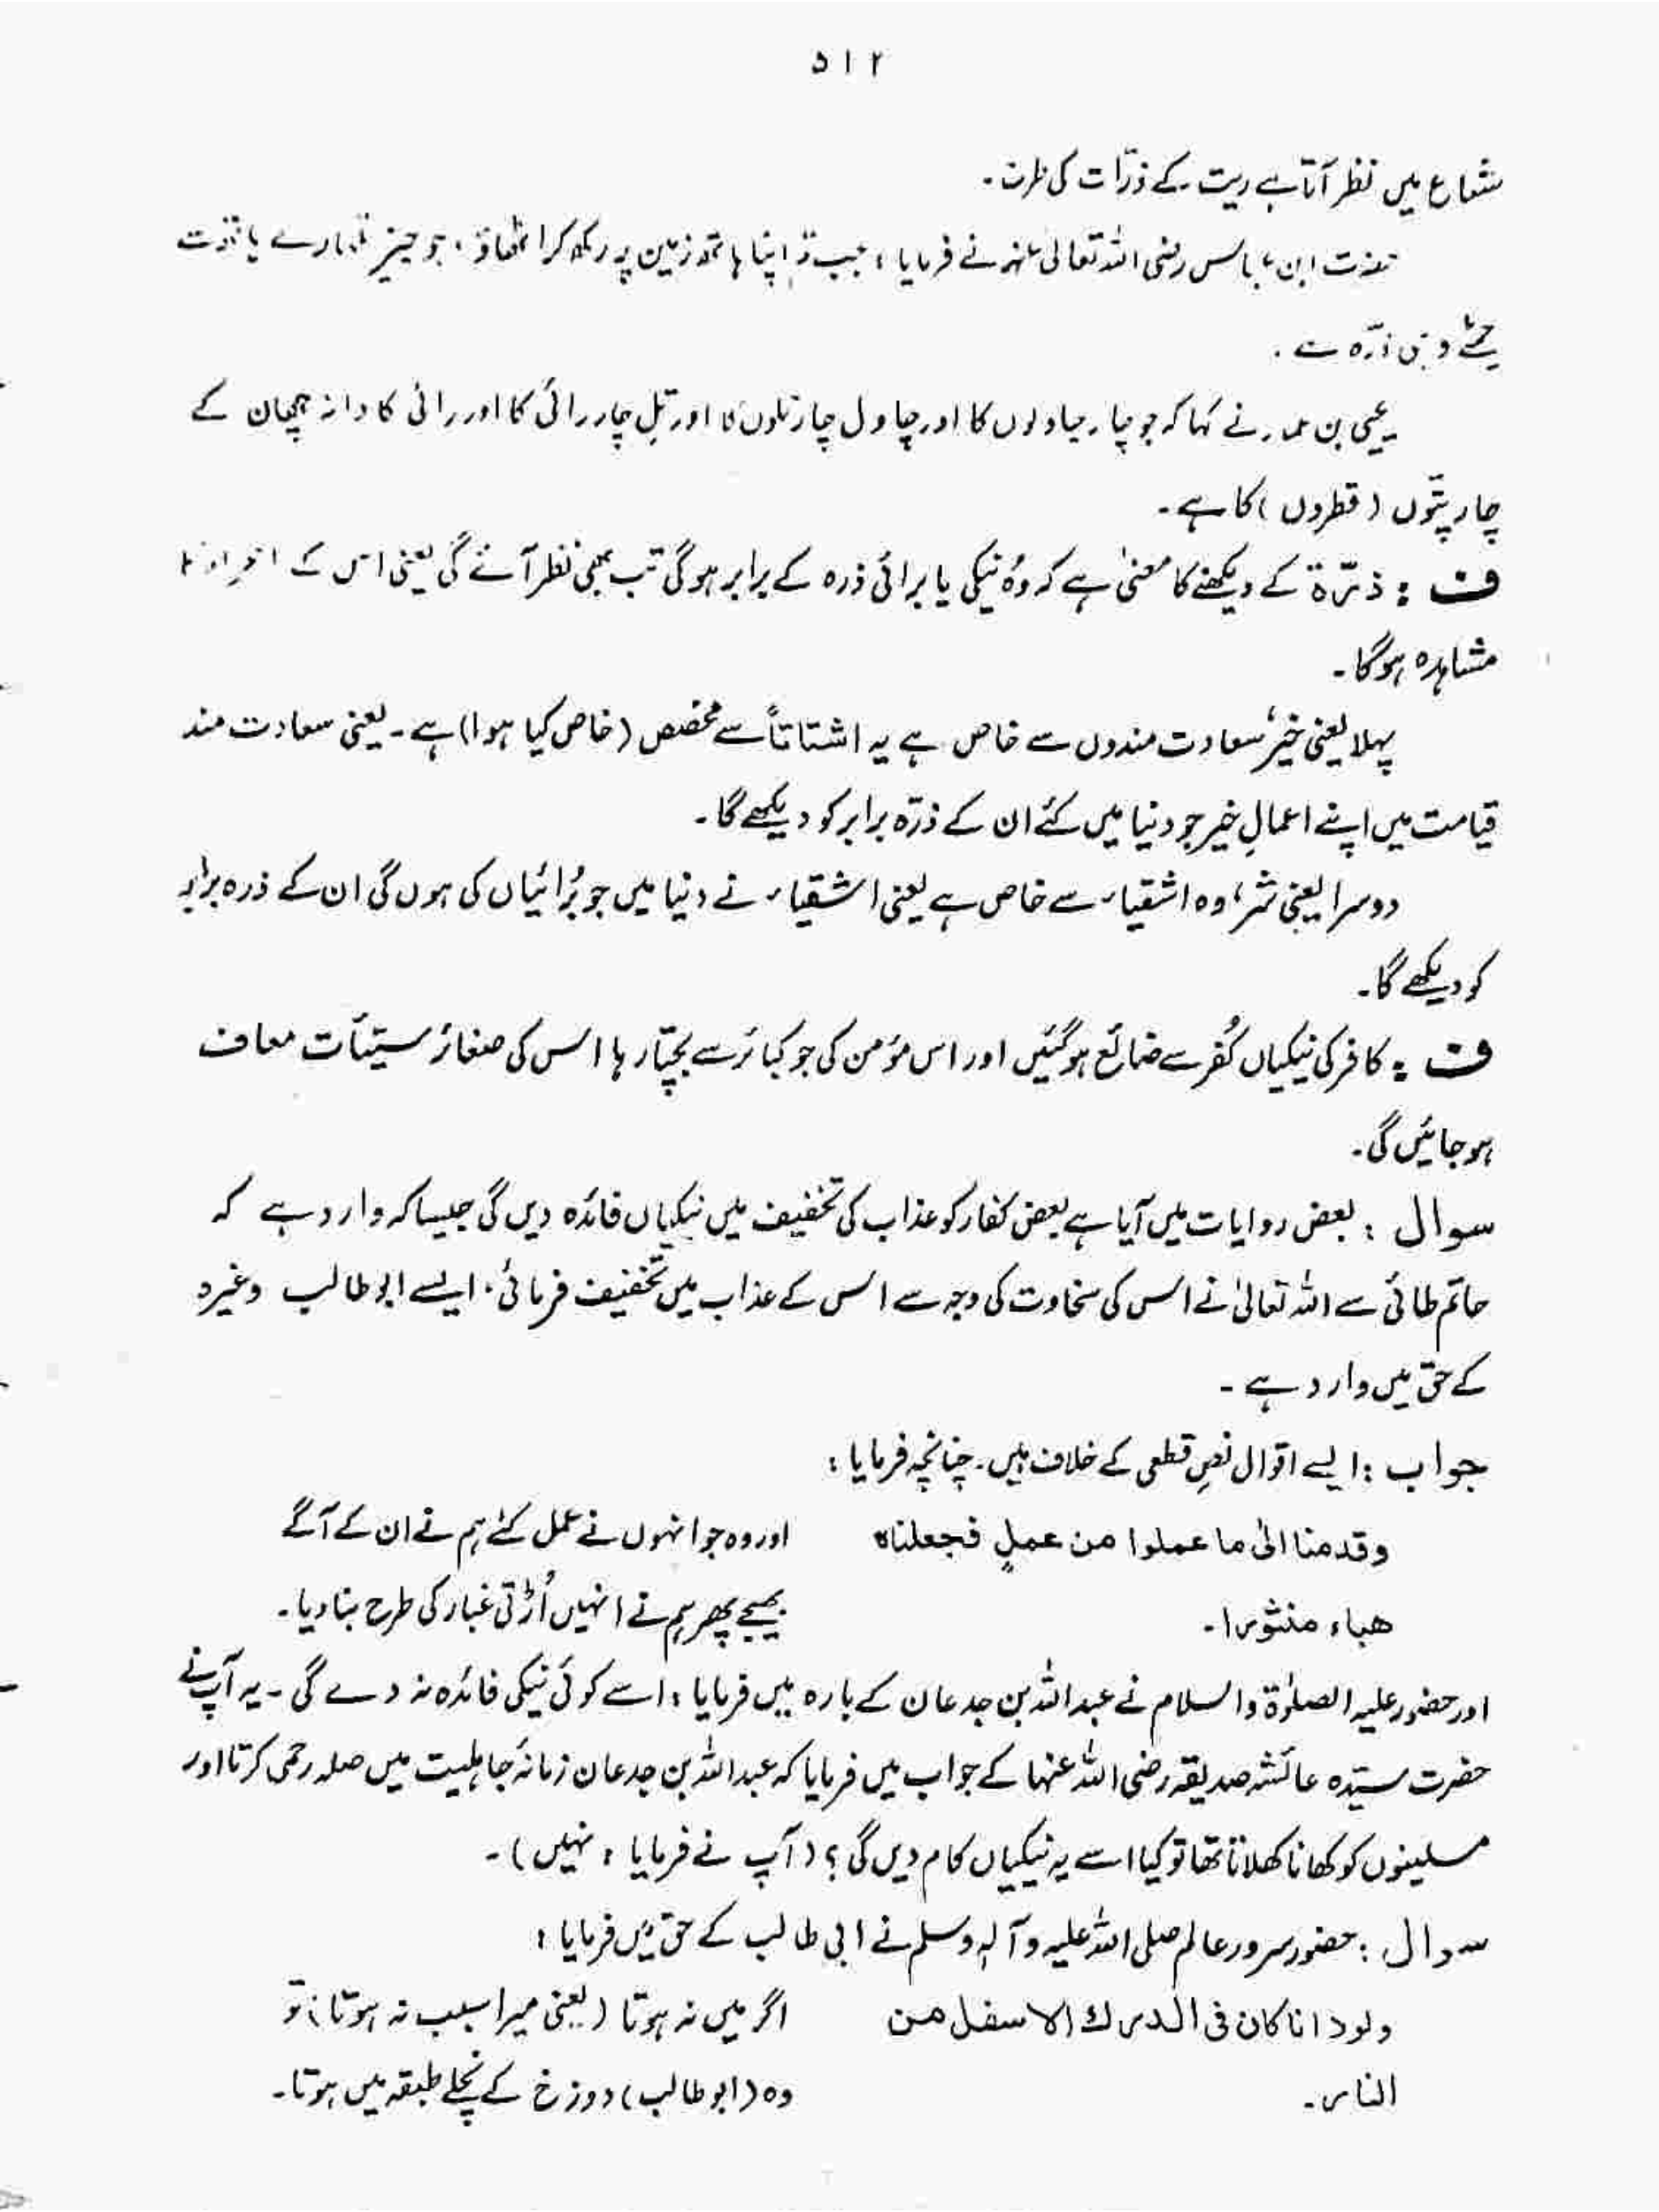 ۵۱۲
شعاع میں نظر آتا ہے ریت کے ذرّات کی طرح۔
حضرت ابن عباس رضی اللہ تعالیٰ عنہ نے فرمایا؛ جب تو اپنا ہاتھ زمین پر رکھ کر اٹھاؤ، جو چیز تمہارے ہاتھ سے
چمٹے وہی ذرّہ ہے۔
یحیی بن عمار نے کہا کہ جو چار چاولوں کا اور چاول چار تلوں کا اور تِل چار رائی کا اور رائی کا دانہ چھان کے
چار پتّوں (قطروں) کا ہے۔
ف : ذرّۃ کے دیکھنے کا معنیٰ ہے کہ وُہ نیکی یا برائی ذرہ کے برابر ہوگی تب بھی نظر آئے گی یعنی اس کے
مشاہدہ ہوگا۔
پہلا یعنی خیرٌ سعادت مندوں سے خاص ہے یہ اشتاتاً سے مخصص (خاص کیا ہوا) ہے۔ یعنی سعادت مند
قیامت میں اپنے اعمالِ خیر جو دنیا میں کئے ان کے ذرّہ برابر کو دیکھے گا۔
دوسرا یعنی شر، وہ اشقیاء سے خاص ہے یعنی اشقیاء نے دنیا میں جو بُرائیاں کی ہوں گی ان کے ذرہ برابر
کو دیکھے گا۔
ف : کافر کی نیکیاں کُفر سے ضائع ہوگئیں اور اس مؤمن کی جو کبائر سے بچتا رہا اس کی صغائر سیّئات معاف
ہوجائیں گی۔
سوال : بعض روایات میں آیا ہے بعض کفار کو عذاب کی تخفیف میں نیکیاں فائدہ دیں گی جیسا کہ وارد ہے کہ
حاتم طائی سے اللہ تعالیٰ نے اس کی سخاوت کی وجہ سے اس کے عذاب میں تخفیف فرمائی، ایسے ابوطالب وغیرہ
کے حق میں وارد ہے۔
جواب : ایسے اقوال نصِ قطعی کے خلاف ہیں۔ چنانچہ فرمایا :
وقدمنا الیٰ ما عملوا من عملٍ فجعلناہ
ھباء منثورا۔
اور وہ جو انہوں نے عمل کئے ہم نے ان کے آگے
بھیجے پھر ہم نے انہیں اُڑتی غبار کی طرح بنا دیا۔
اور حضور علیہ الصلوٰۃ والسلام نے عبداللہ بن جدعان کے بارہ میں فرمایا : اسے کوئی نیکی فائدہ نہ دے گی۔ یہ آپ نے
حضرت سیّدہ عائشہ صدیقہ رضی اللہ عنہا کے جواب میں فرمایا کہ عبداللہ بن جدعان زمانۂ جاہلیت میں صلہ رحمی کرتا اور
مسلینوں کو کھانا کھلاتا تھا تو کیا اسے یہ نیکیاں کام دیں گی؟ (آپ نے فرمایا : نہیں)۔
سوال : حضور سرور عالم صلی اللہ علیہ وآلہٖ وسلم نے ابی طالب کے حق میں فرمایا :
ولود انا کان فی الدرک الاسفل من
النار۔
اگر میں نہ ہوتا (یعنی میرا سبب نہ ہوتا) تو
وہ (ابوطالب) دوزخ کے نچلے طبقہ میں ہوتا۔